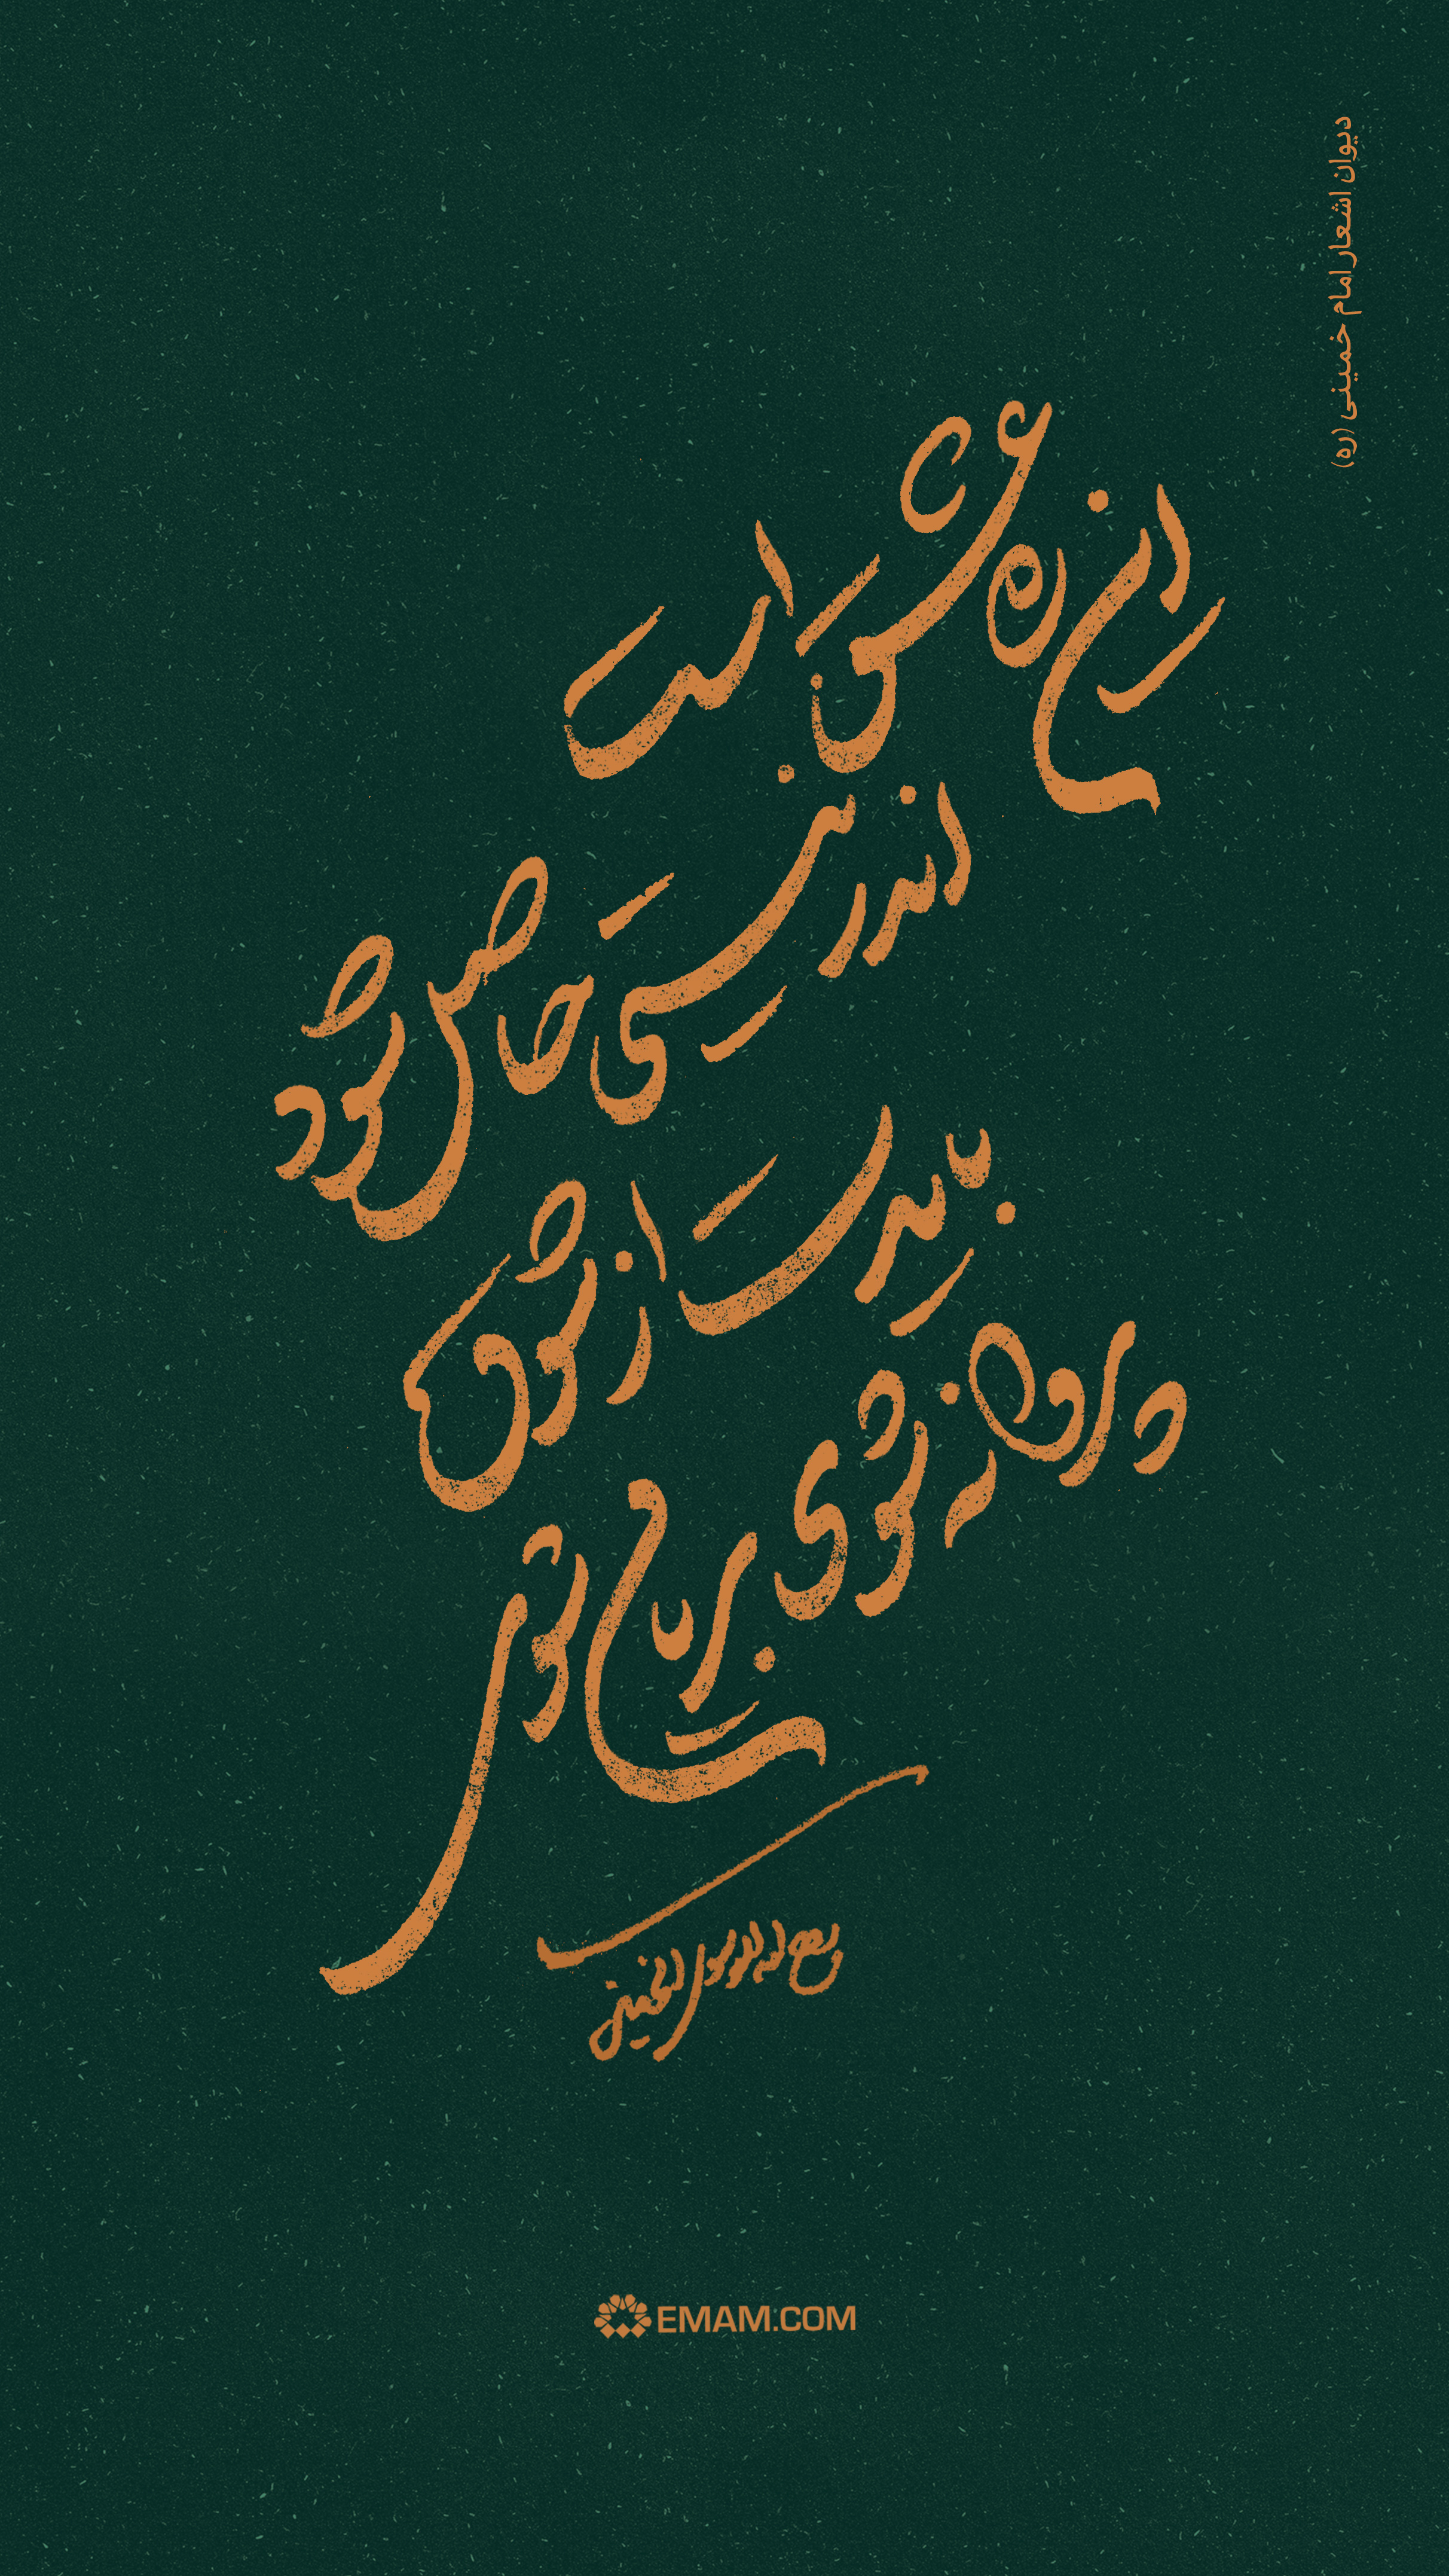 دیوان اشعار امام خمینی (ره)
این ره عشق است
اندر نیستی حاصل شود
بایدت از شوق
پروانه شوی بریان شوی
روح الله الموسوی الخمینی
EMAM.COM